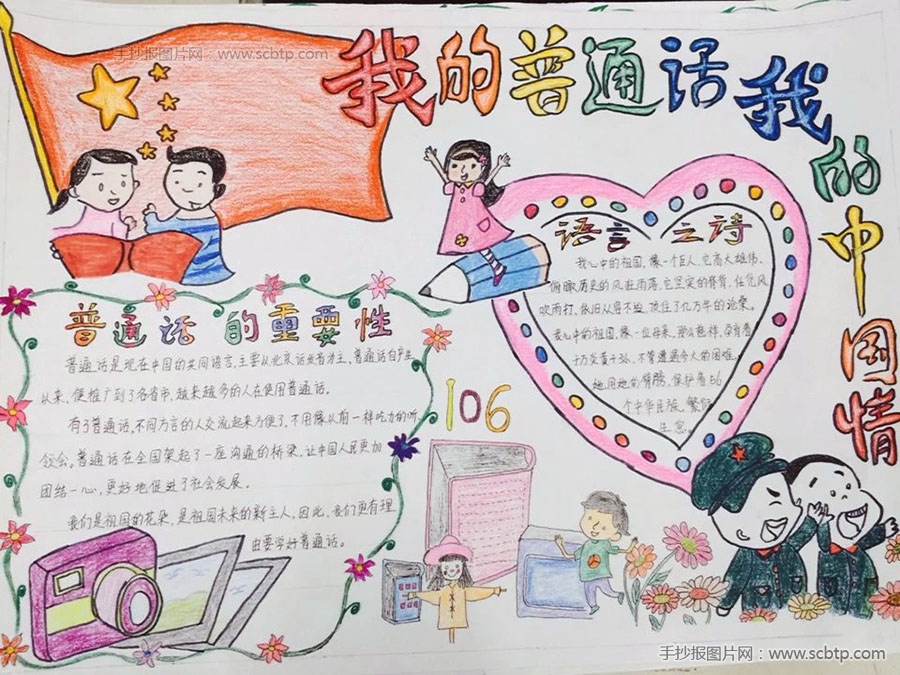 手抄报图片网:www.scbtp.com
我的普通话我的中国情
普通话的重要性
普通话是现在中国的共同语言,主要以北京话发音为主,普通话自产生
以来,便推广到了各省市,越来越多的人在使用普通话。
有了普通话,不同方言的人交流起来方便了,不用像以前一样吃力的听、
领会。普通话在全国架起了一座沟通的桥梁,让中国人民更加
团结一心,更好地促进了社会发展。
我们是祖国的花朵,是祖国未来的新主人,因此,我们更有理
由要学好普通话。
106
语言之诗
我心中的祖国,像一个巨人,它高大雄伟,
俯瞰历史的风狂雨落,它坚实的脊背,任凭风
吹雨打,依旧从容不迫,顶住了亿万年的沧桑。
我心中的祖国,像一位母亲,那么慈祥,孕育着
十万炎黄子孙,不管遭遇多大的困难,
她用她的臂膀,保护着56
个中华民族,繁衍
生息。
手抄报图片网:www.scbtp.com